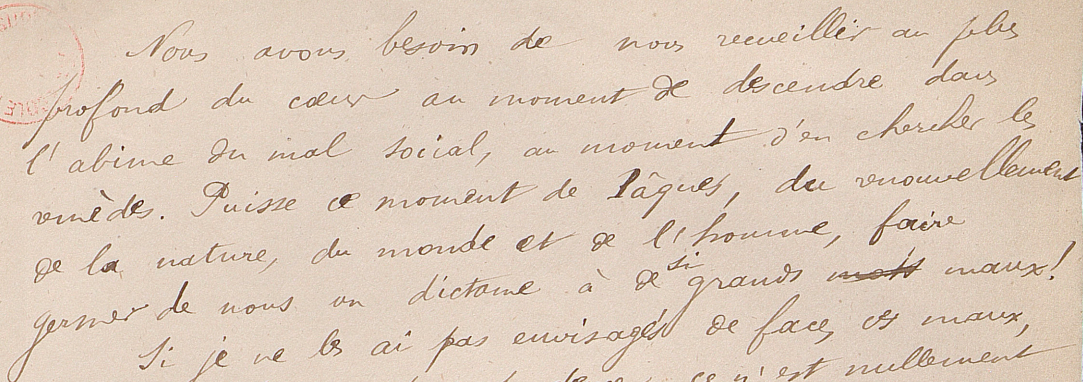 Nous avons besoin de nous recueillir au plus
profond du cœur au moment de descendre dans
l'abime du mal social, au moment d'en chercher les
remèdes. Puisse ce moment de Pâques, du renouvellement
de la nature, du monde et de l'homme, faire
germer de nous un dictame à de si grands mots maux!
Si je ne les ai pas envisagés de face, ces maux,
ce n'est nullement